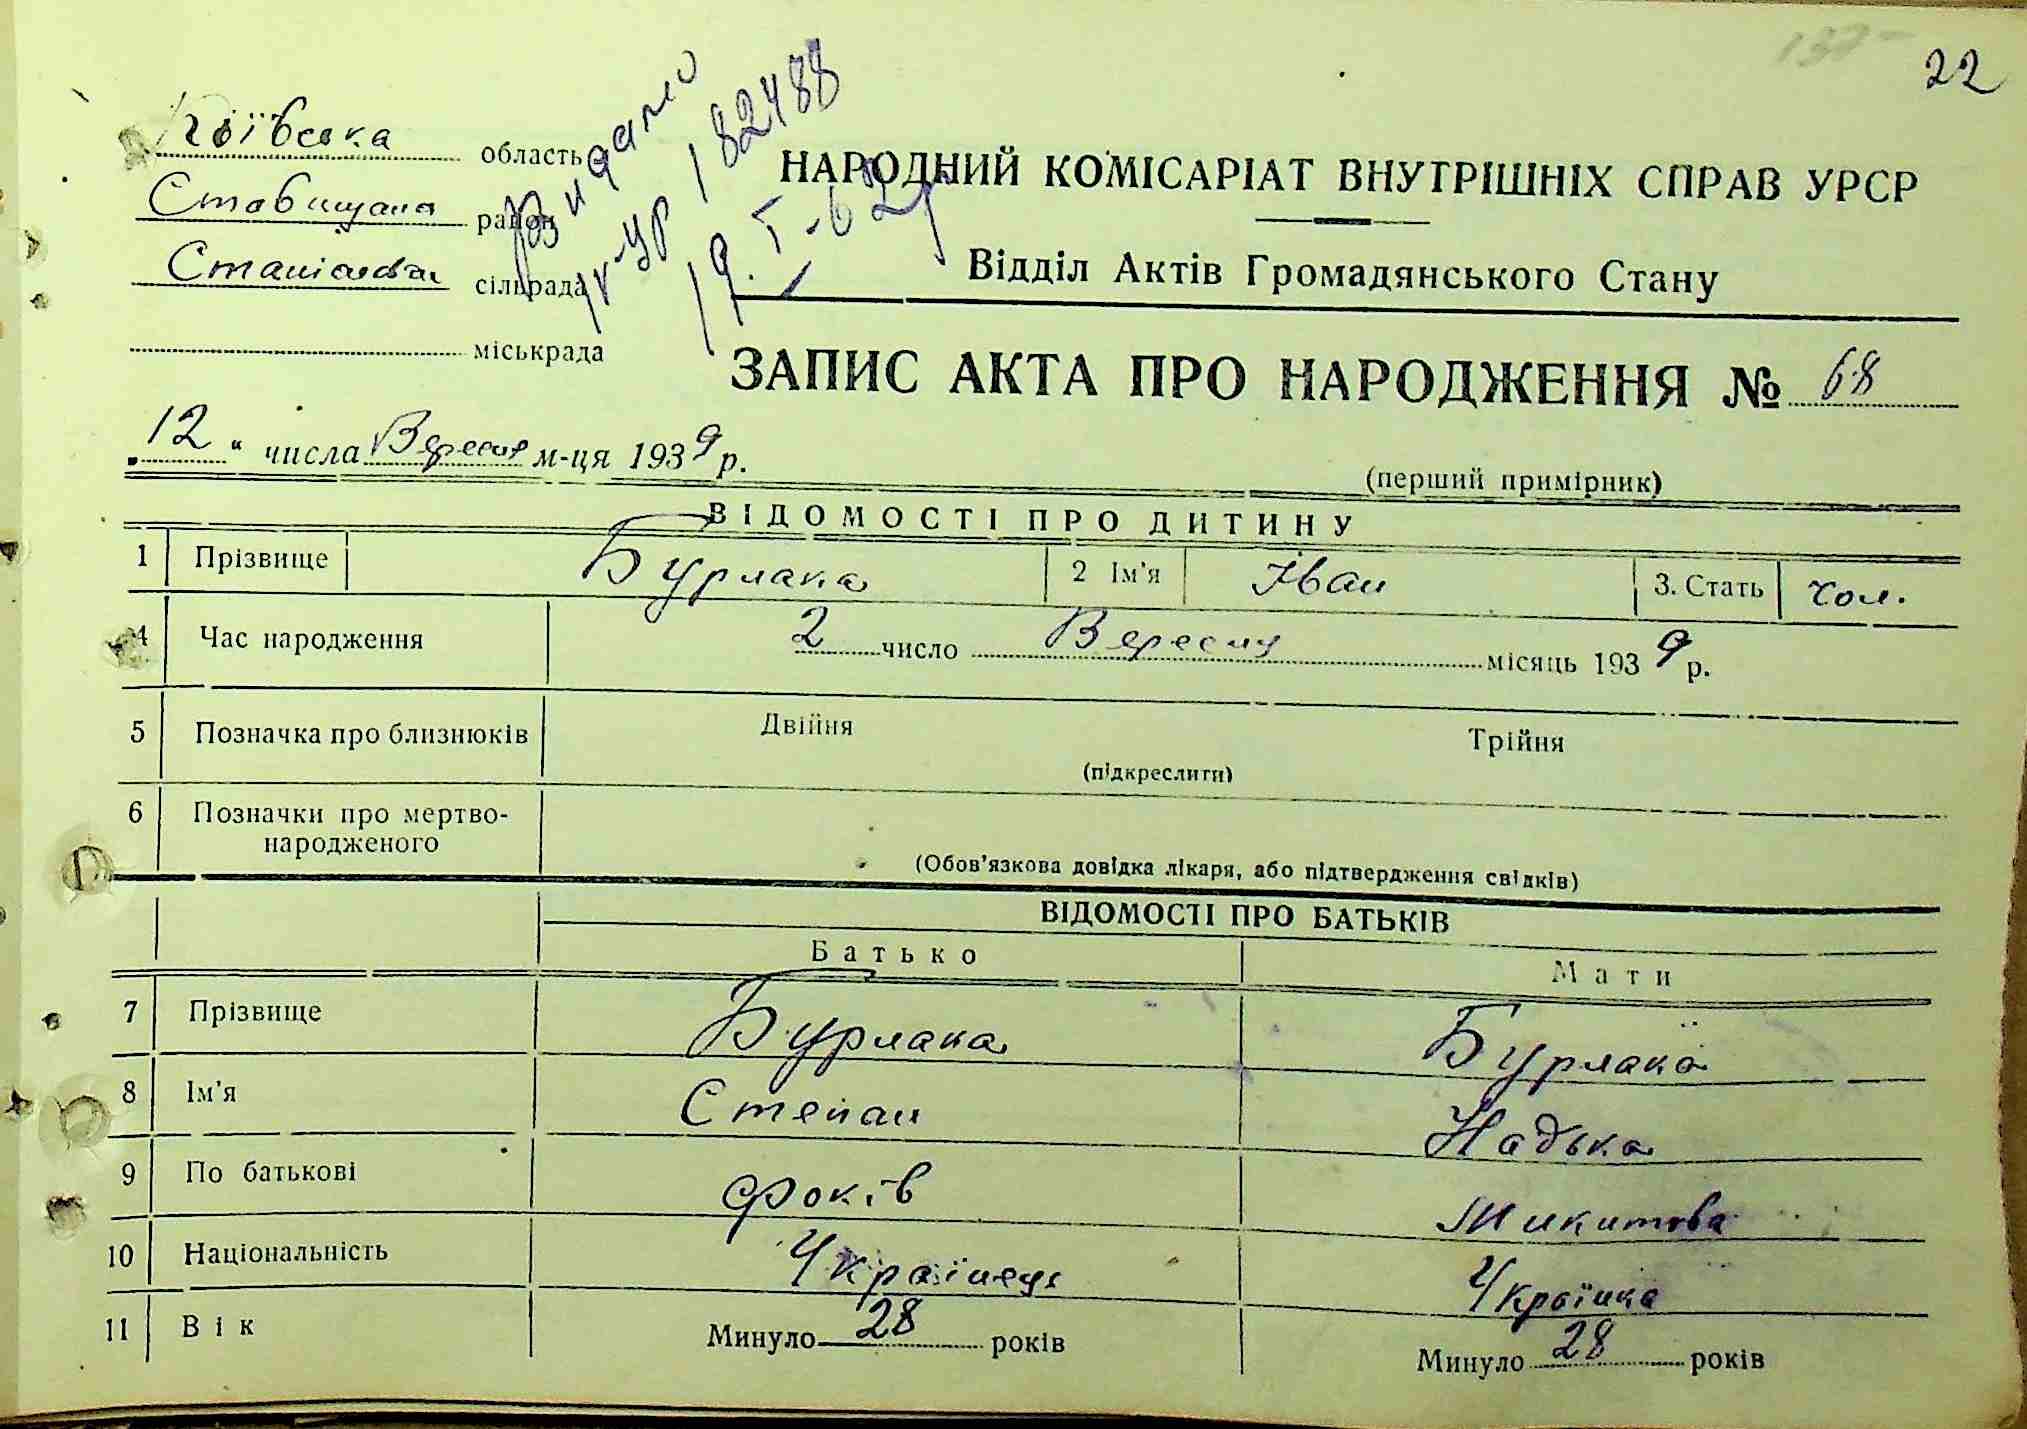 22
Київська область
Ставищан район
сільрада
міськрада
Видано
УР 182488
19. I-62р
НАРОДНИЙ КОМІСАРІАТ ВНУТРІШНІХ СПРАВ УРСР
Відділ Актів Громадянського Стану
ЗАПИС АКТА ПРО НАРОДЖЕННЯ № 68
„12“ числа Вересня м-ця 1939 р.
(перший примірник)
ВІДОМОСТІ ПРО ДИТИНУ
1 Прізвище Бурлака 2 Ім'я Іван 3. Стать чол.
4 Час народження 2 число Вересня місяць 1939 р.
5 Позначка про близнюків Двійня Трійня
(підкреслити)
6 Позначки про мертво-
народженого
(Обов'язкова довідка лікаря, або підтвердження свідків)
ВІДОМОСТІ ПРО БАТЬКІВ
Батько Мати
7 Прізвище Бурлака Бурлака
8 Ім'я Степан Надька
9 По батькові Фоків Микитова
10 Національність Українець Українка
11 Вік Минуло 28 років Минуло 28 років